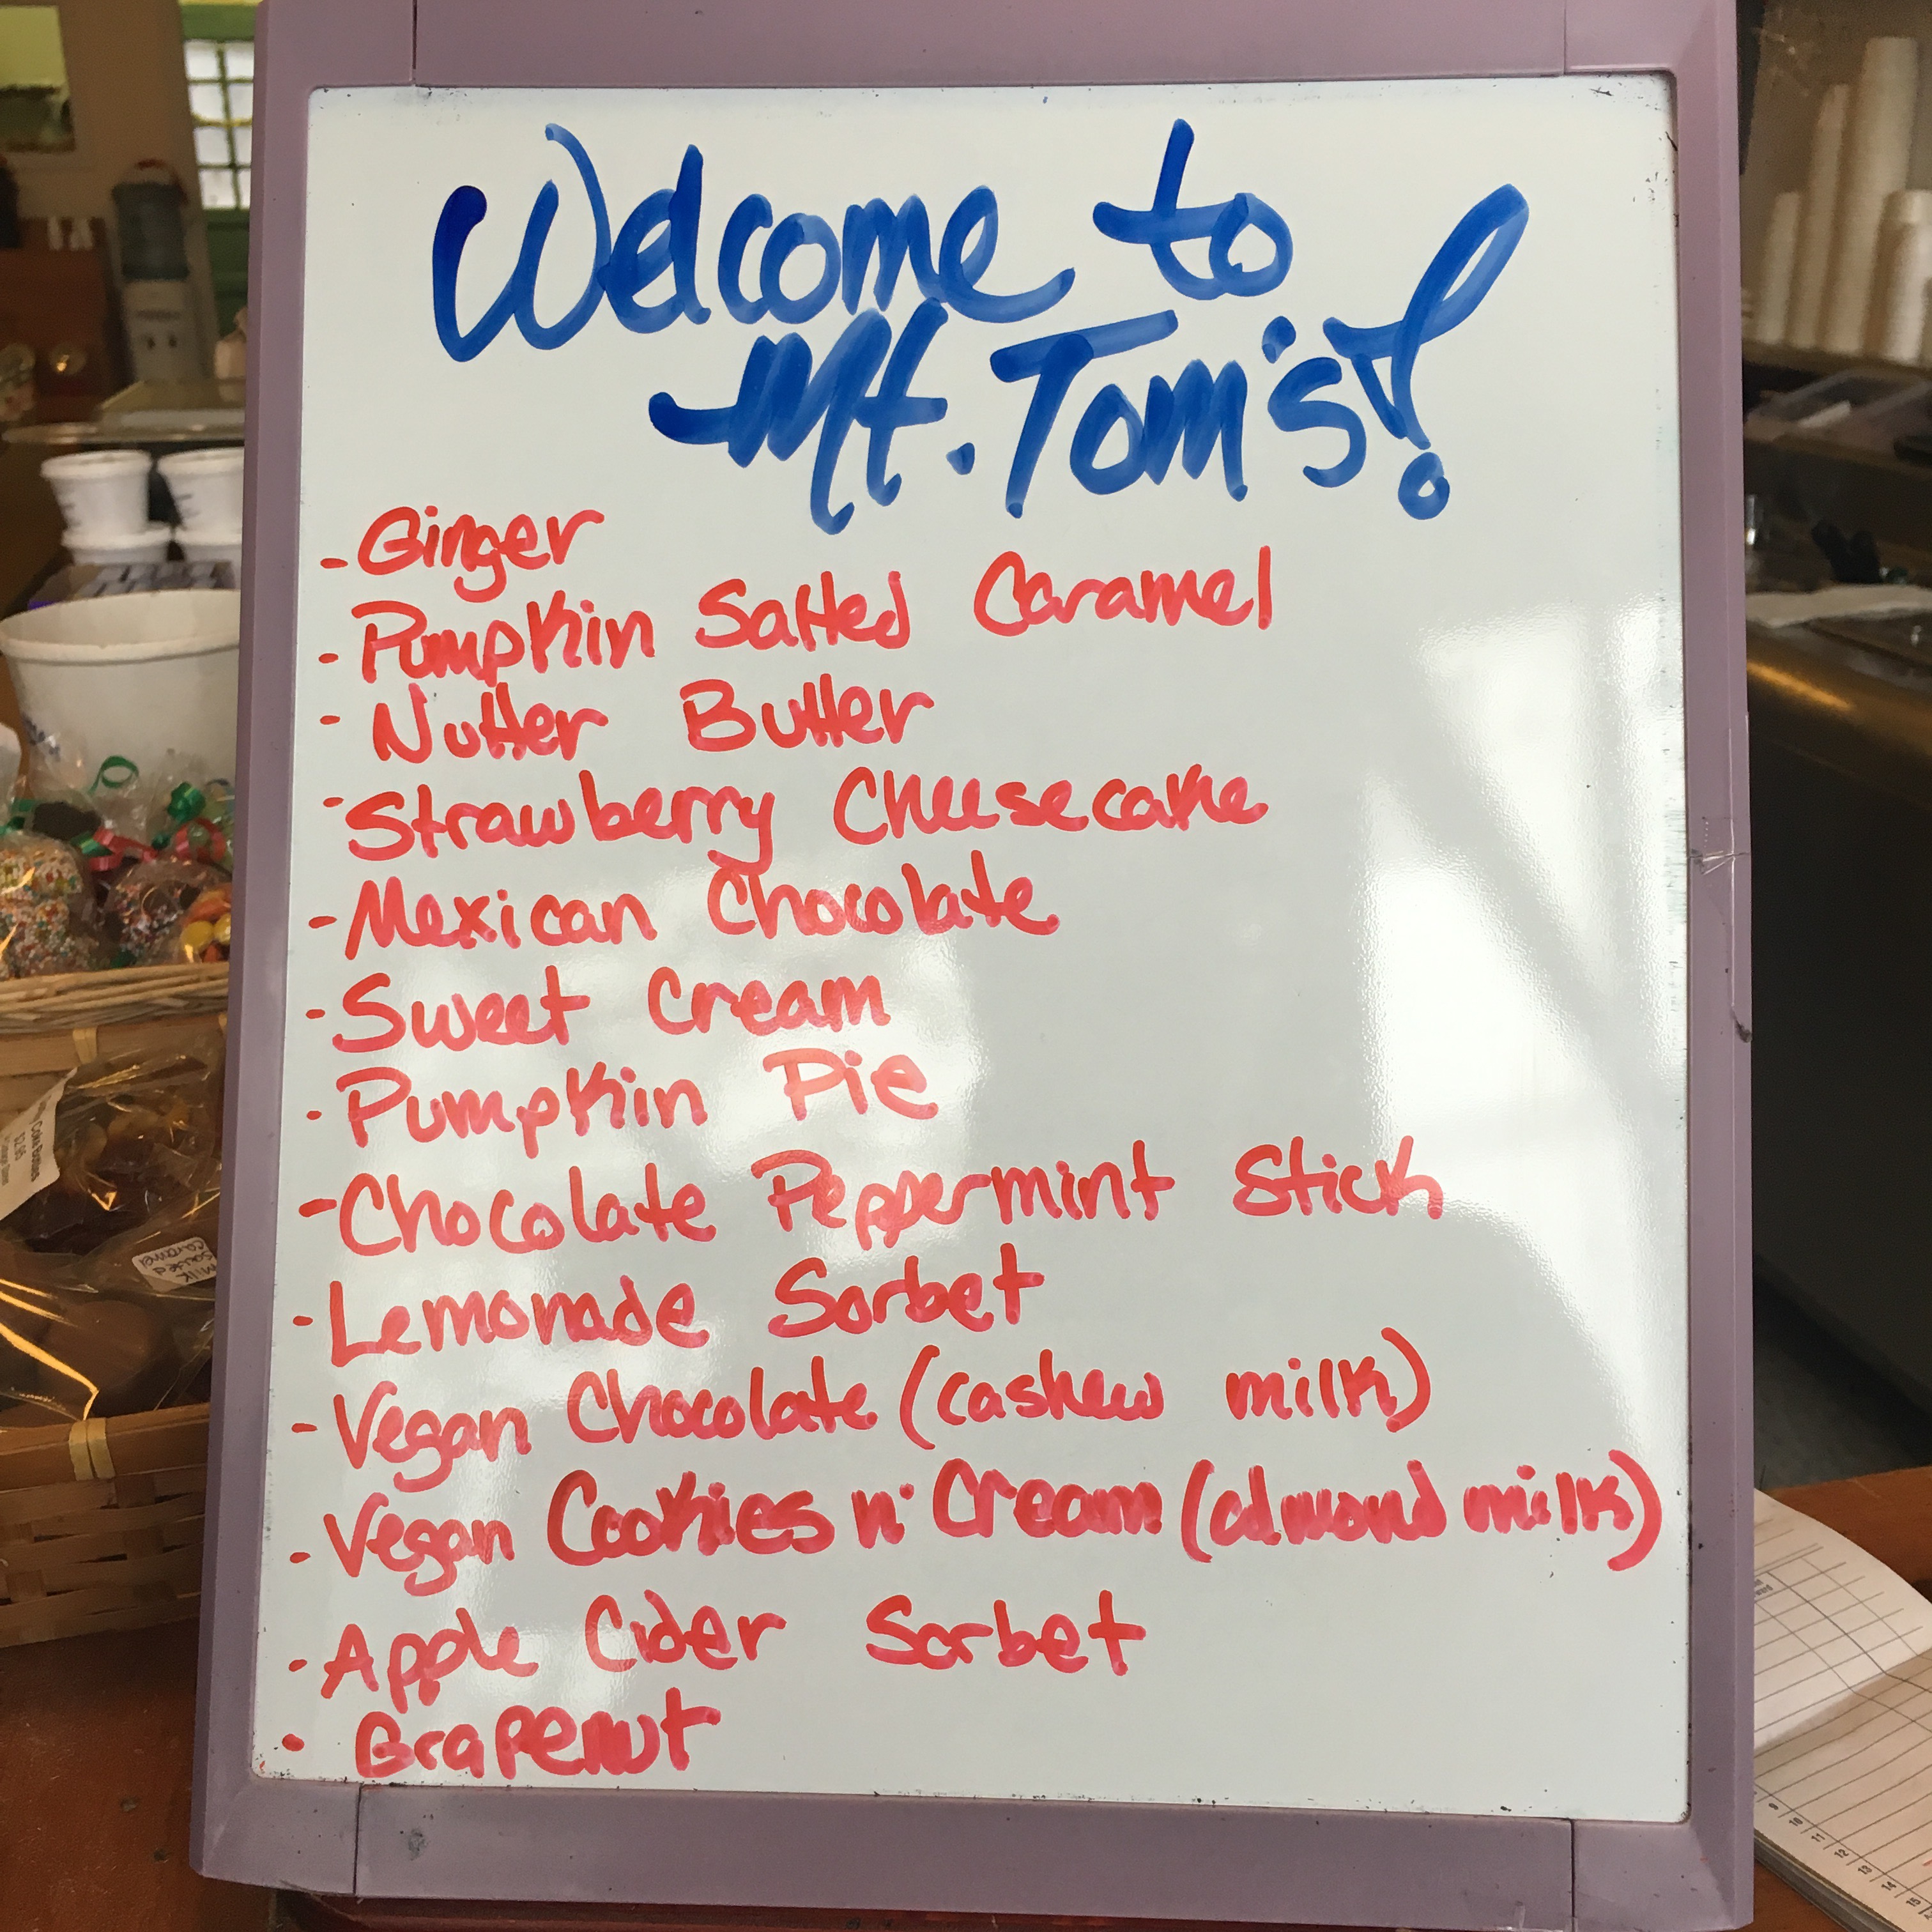 Welcome to
Mt. Tom's!
- Ginger
- Pumpkin Salted Caramel
- Nutter Butter
- Strawberry Cheesecake
- Mexican Chocolate
- Sweet Cream
- Pumpkin Pie
- Chocolate Peppermint Stick
- Lemonade Sorbet
- Vegan Chocolate (cashew milk)
- Vegan Cookies n' Cream (almond milk)
- Apple Cider Sorbet
- Grapenut
Milk
Salted
Caramel
9
10
11
12
13
14
15